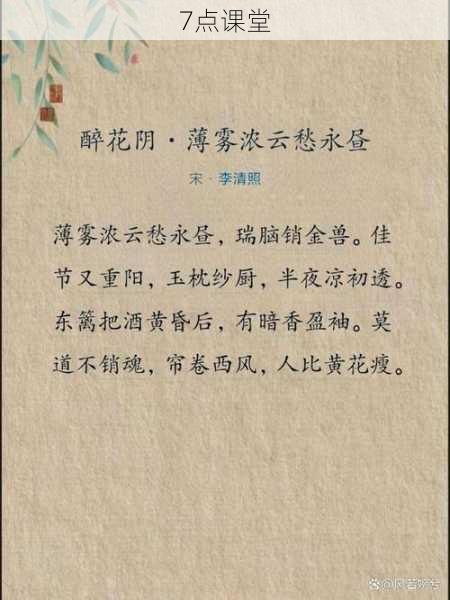 7点课堂
醉花阴·薄雾浓云愁永昼
宋·李清照
薄雾浓云愁永昼，瑞脑销金兽。佳
节又重阳，玉枕纱厨，半夜凉初透。
东篱把酒黄昏后，有暗香盈袖。莫
道不销魂，帘卷西风，人比黄花瘦。